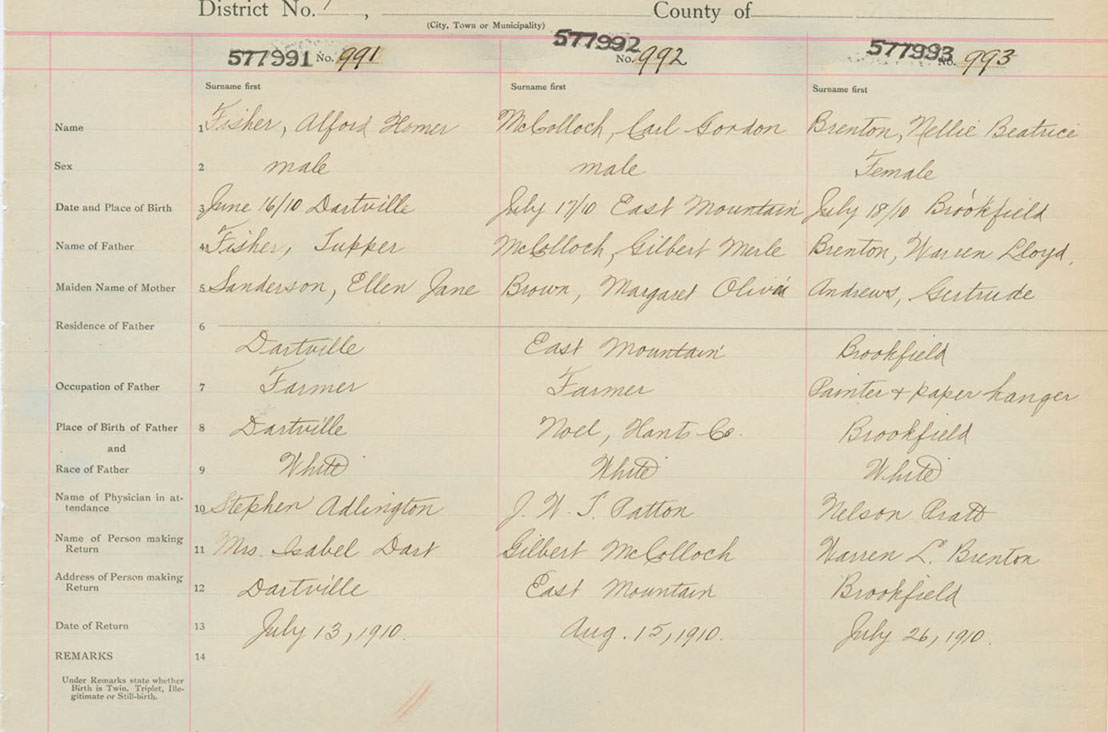 District No. 7, County of
(City, Town or Municipality)
577991 No. 991 577992 No. 992 577993 No. 993
Surname first Surname first Surname first
Name 1 Fisher, Alford Homer McColloch, Carl Gordon Brenton, Nellie Beatrice
Sex 2 male male Female
Date and Place of Birth 3 June 16/10 Dartville July 17/10 East Mountain July 18/10 Brookfield
Name of Father 4 Fisher, Tupper McColloch, Gilbert Merle Brenton, Warren Lloyd.
Maiden Name of Mother 5 Sanderson, Ellen Jane Brown, Margaret Olivia Andrews, Gertrude
Residence of Father 6
Dartville East Mountain Brookfield
Occupation of Father 7 Farmer Farmer Painter & paper hanger
Place of Birth of Father 8 Dartville Noel, Hants Co. Brookfield
and
Race of Father 9 White White White
Name of Physician in at-
tendance 10 Stephen Adlington J. W. T. Patton Nelson Pratt
Name of Person making
Return 11 Mrs. Isabel Dart Gilbert McColloch Warren L. Brenton
Address of Person making
Return 12 Dartville East Mountain Brookfield
Date of Return 13 July 13, 1910. Aug. 15, 1910. July 26, 1910.
REMARKS 14
Under Remarks state whether
Birth is Twin, Triplet, Ille-
gitimate or Still-birth.